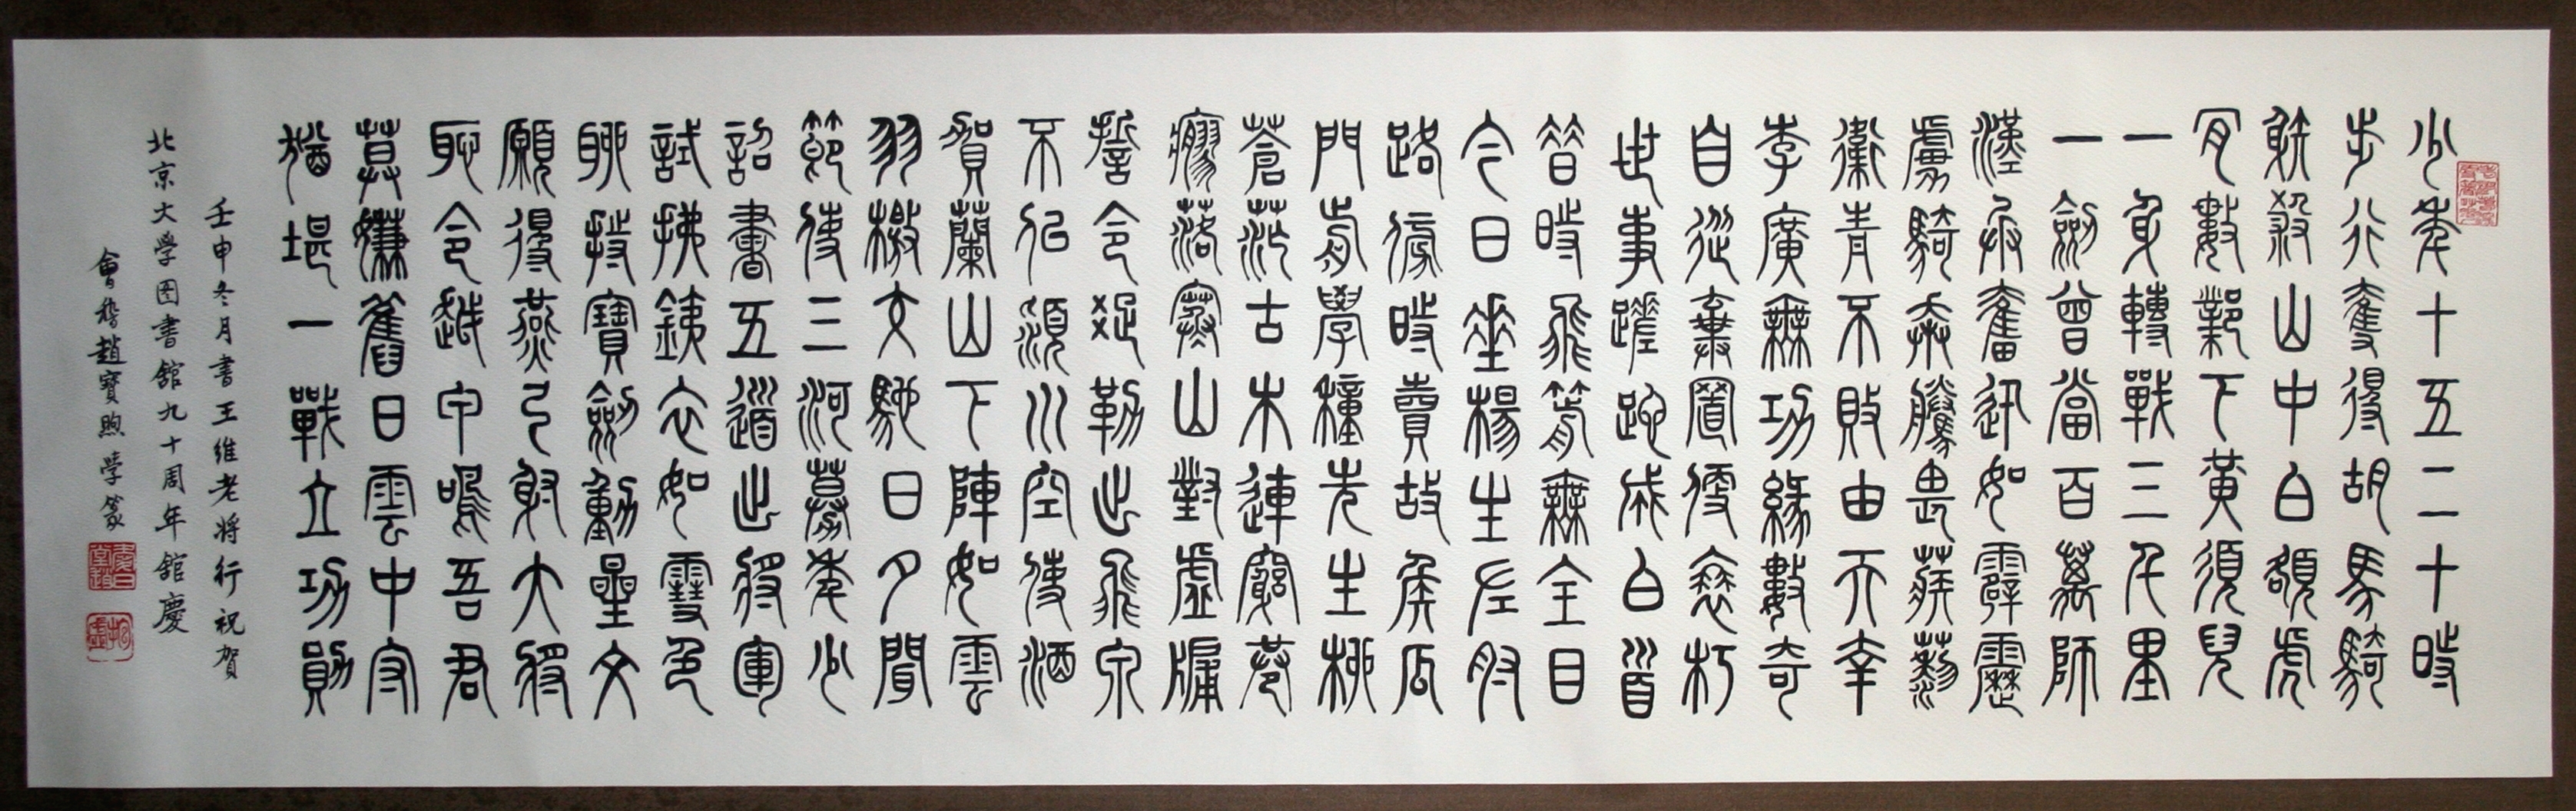 少年十五二十時
步行奪得胡馬騎
射殺山中白額虎
肯數鄴下黃須兒
一身轉戰三千里
一劍曾當百萬師
漢兵奮迅如霹靂
虜騎奔騰畏蒺藜
衛青不敗由天幸
李廣無功緣數奇
自從棄置便衰朽
世事蹉跎成白首
昔時飛箭無全目
今日垂楊生左肘
路傍時賣故侯瓜
門前學種先生柳
蒼茫古木連窮巷
寥落寒山對虛牖
誓令疏勒出飛泉
不似潁川空使酒
賀蘭山下陣如雲
羽檄交馳日夕聞
節使三河募年少
詔書五道出將軍
試拂鐵衣如雪色
聊持寶劍動星文
願得燕弓射大將
恥令越甲鳴吾君
莫嫌舊日雲中守
猶堪一戰立功勛
壬申冬月書王維老将行祝賀
北京大学图書館九十周年館慶
會稽趙寶煦學篆